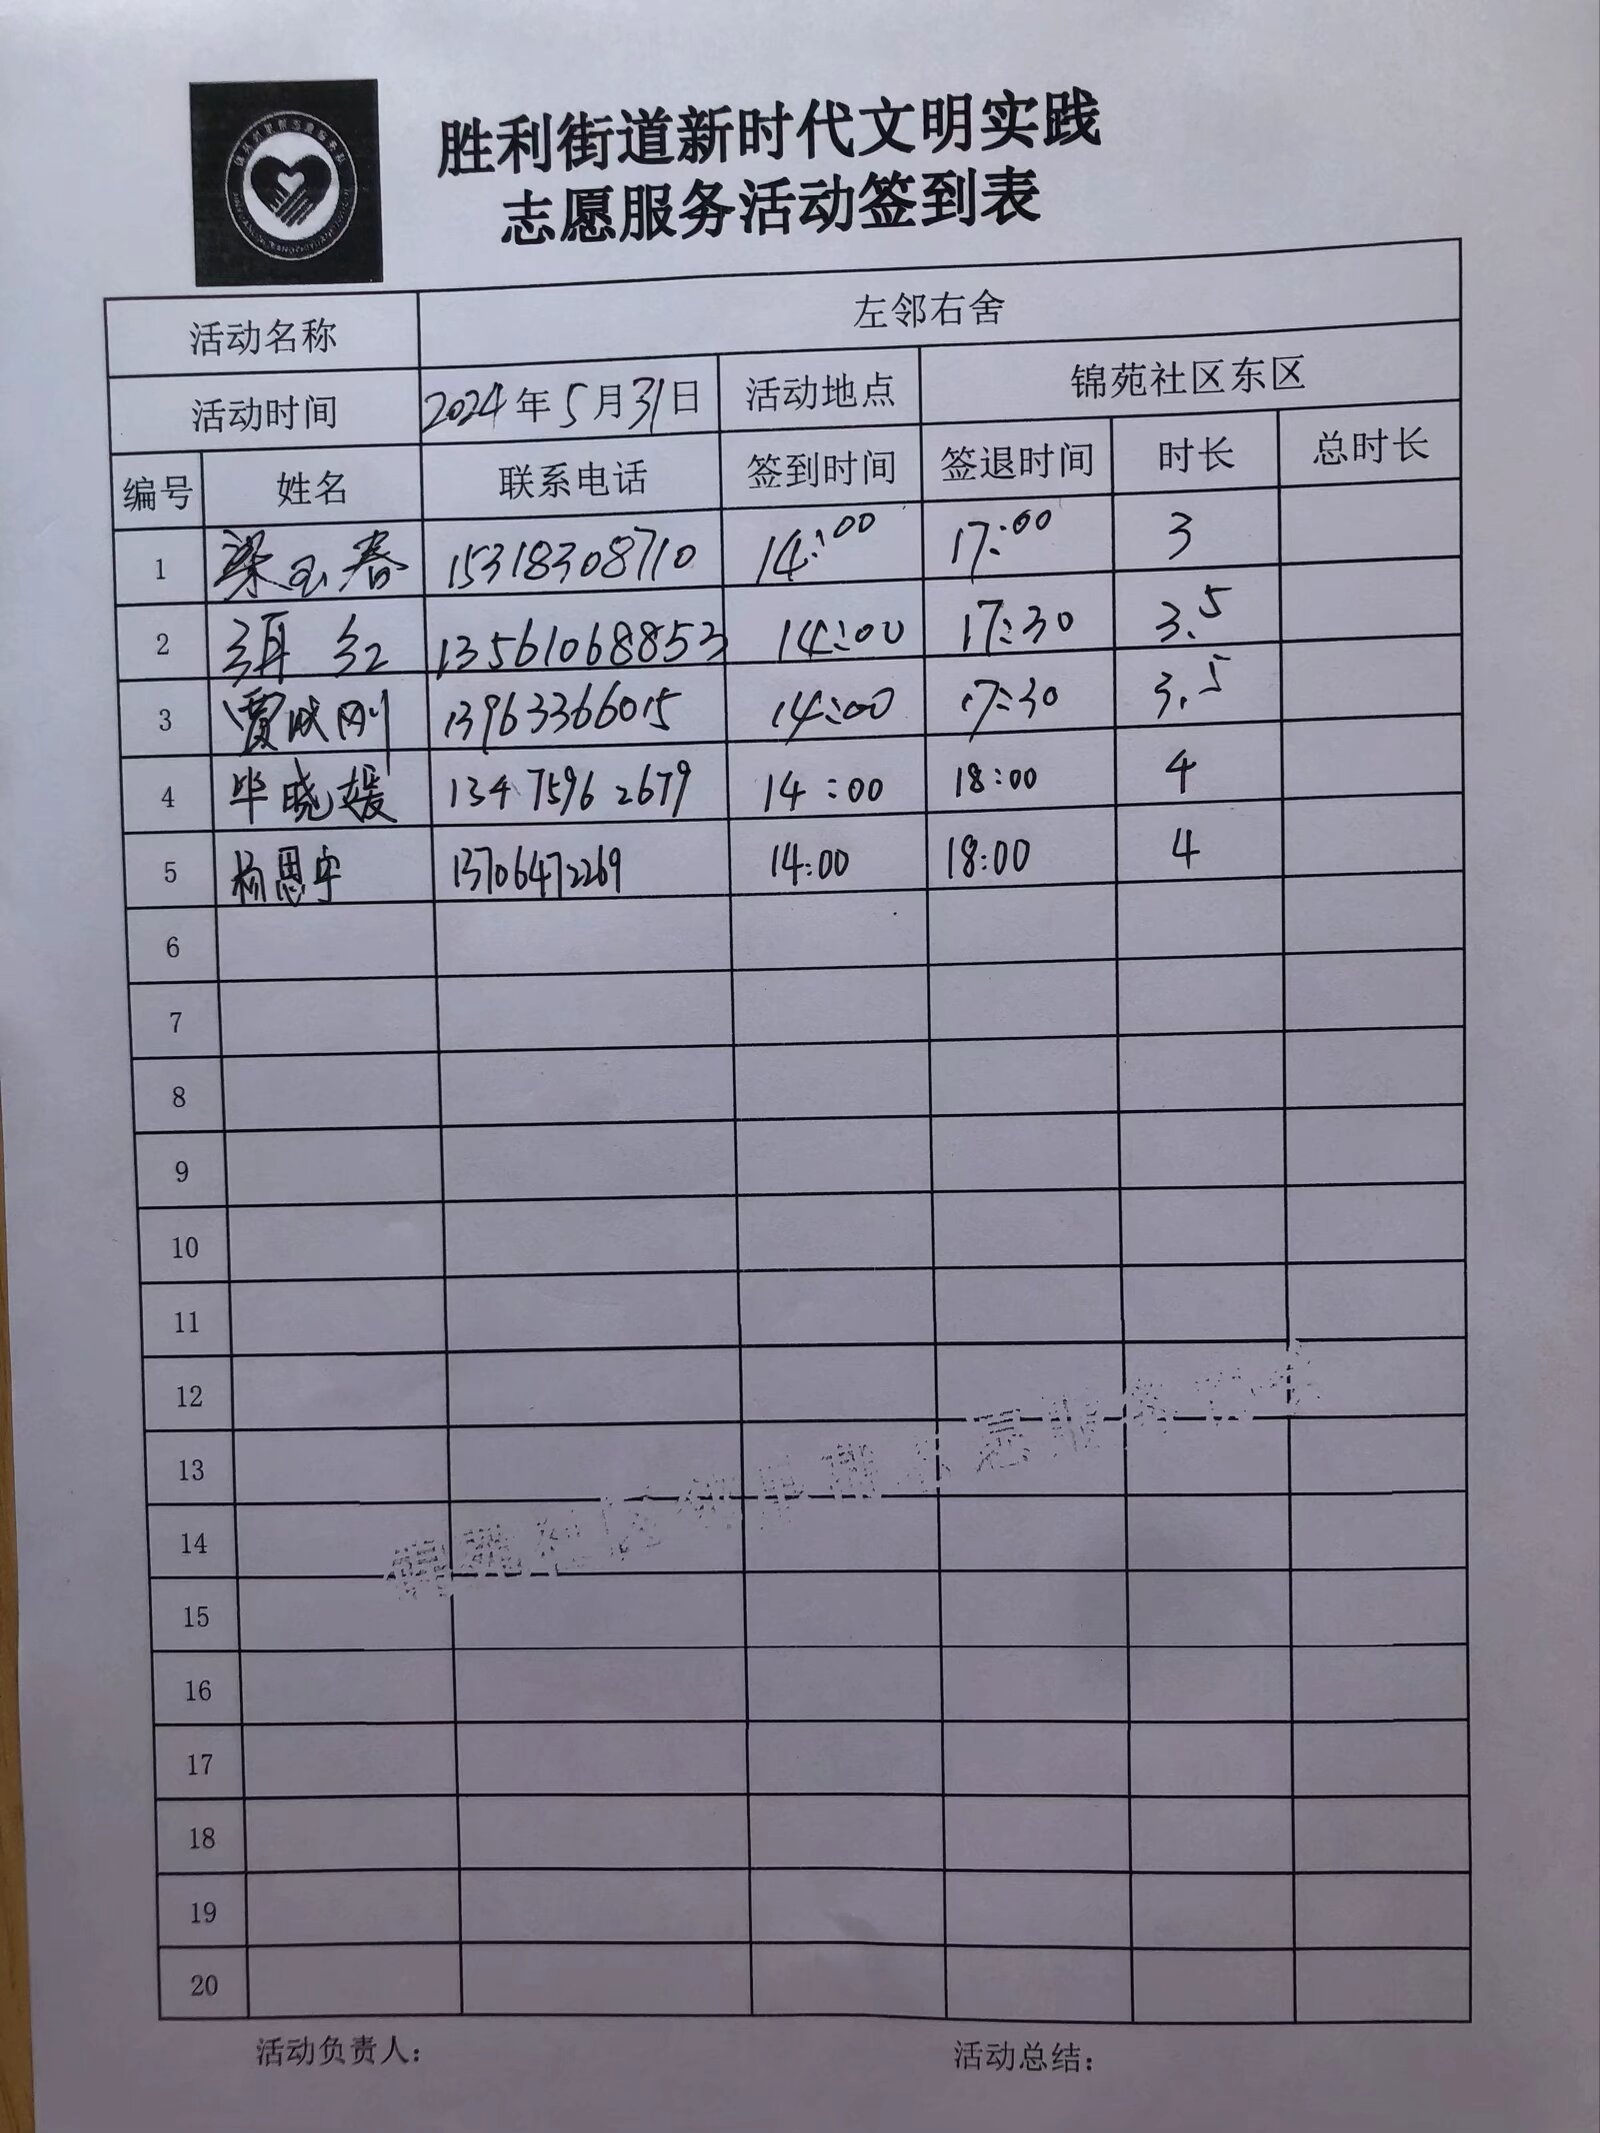 胜利街道新时代文明实践
志愿服务活动签到表
活动名称 左邻右舍
活动时间 2024年5月31日 活动地点 锦苑社区东区
编号 姓名 联系电话 签到时间 签退时间 时长 总时长
1 梁玉春 15318308710 14:00 17:00 3
2 红 13561068853 14:00 17:30 3.5
3 贾成刚 13963366015 14:00 17:30 3.5
4 毕晓媛 13475962679 14:00 18:00 4
5 杨恩宇 13706472269 14:00 18:00 4
6
7
8
9
10
11
12
13
14
15
16
17
18
19
20
活动负责人： 活动总结：